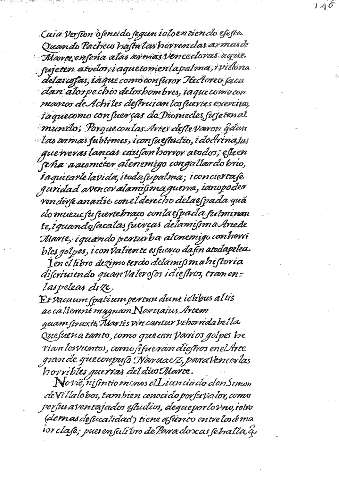 146
Cuia version o sentido segun io lo entiendo es este
Quando Pacheco hasta las horrendas armas de
Marte, enseña a las armas vencedoras a que
sujeten a todos; ia que tomen la palma, i vitoria
de las cosas, ia que como con furor Hectoreo saca
dan a los pechos de los hombres, ia que como con
manos de Achiles destruian los fuertes exercitos,
ia que como con fuerças de Diomedes sujeten al
mundo; Porque con las Artes deste Varon
las armas sublimes, i con su estudio, i dotrina, las
guerreras lanças causan horror a todos; este en
seña a acometer al enemigo con gallardo brio,
ia quitarle la vida, i toda su palma; i con cierta se
guridad a vencer a la misma guerra, ia no poder
rendirse a nadie con el derecho de la espada quā
do mueve su fuerte braço con la espada fulminan
te, i quando saca las fuerças de la misma Arte de
Marte, i quando perturba al enemigo con horri
bles golpes, i con valiente esfuerço da fin a toda pelea
I en el libro dezimo tercio de la misma historia
discriviendo quan valeroso i diestro, era en
las peleas dize.
Et vacuum spatium pertundunt ictibus altis
ac vallient magnam Norvaius Artem
quam struxit, Martis vincuntur ut horrida bella
Que suena tanto, como que con varios golpes he
rian los vientos, como si fueran diestros en el Arte
grande que compuso Narvaez, para vencer las
horribles guerras del dios Marte.
No vio, ni sintio menos el Licenciado don Simon
de Villalobos, tambien conocido por su valor, como
por su aventajados estudios, de que por lo uno, i otro
(demas de su calidad) tiene assiento entre los de ma
ior clase; pues en su libro de Paradoxas se halla, q̄